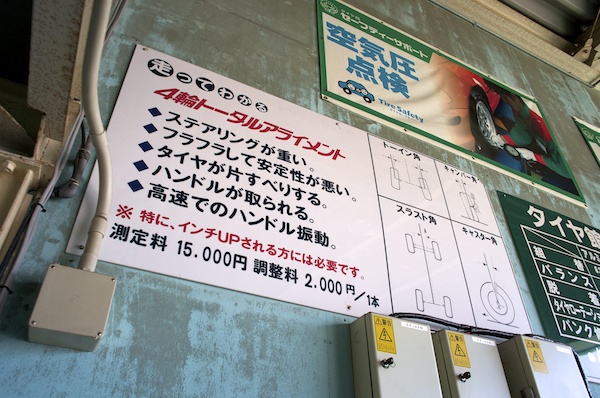 セーフティーサポート
空気圧
点検
Tire Safety
走ってわかる
4輪トータルアライメント
◆ステアリングが重い。
◆フラフラして安定性が悪い。
◆タイヤが片すべりする。
◆ハンドルが取られる。
◆高速でのハンドル振動。
※ 特に、インチUPされる方には必要です。
測定料 15.000円 調整料 2.000円/1本
トーイン角
キャンバー角
スラスト角
キャスター角
タイヤ館
組替
バランス
脱着
タイヤローテーション
パンク修
警告
警告
警告